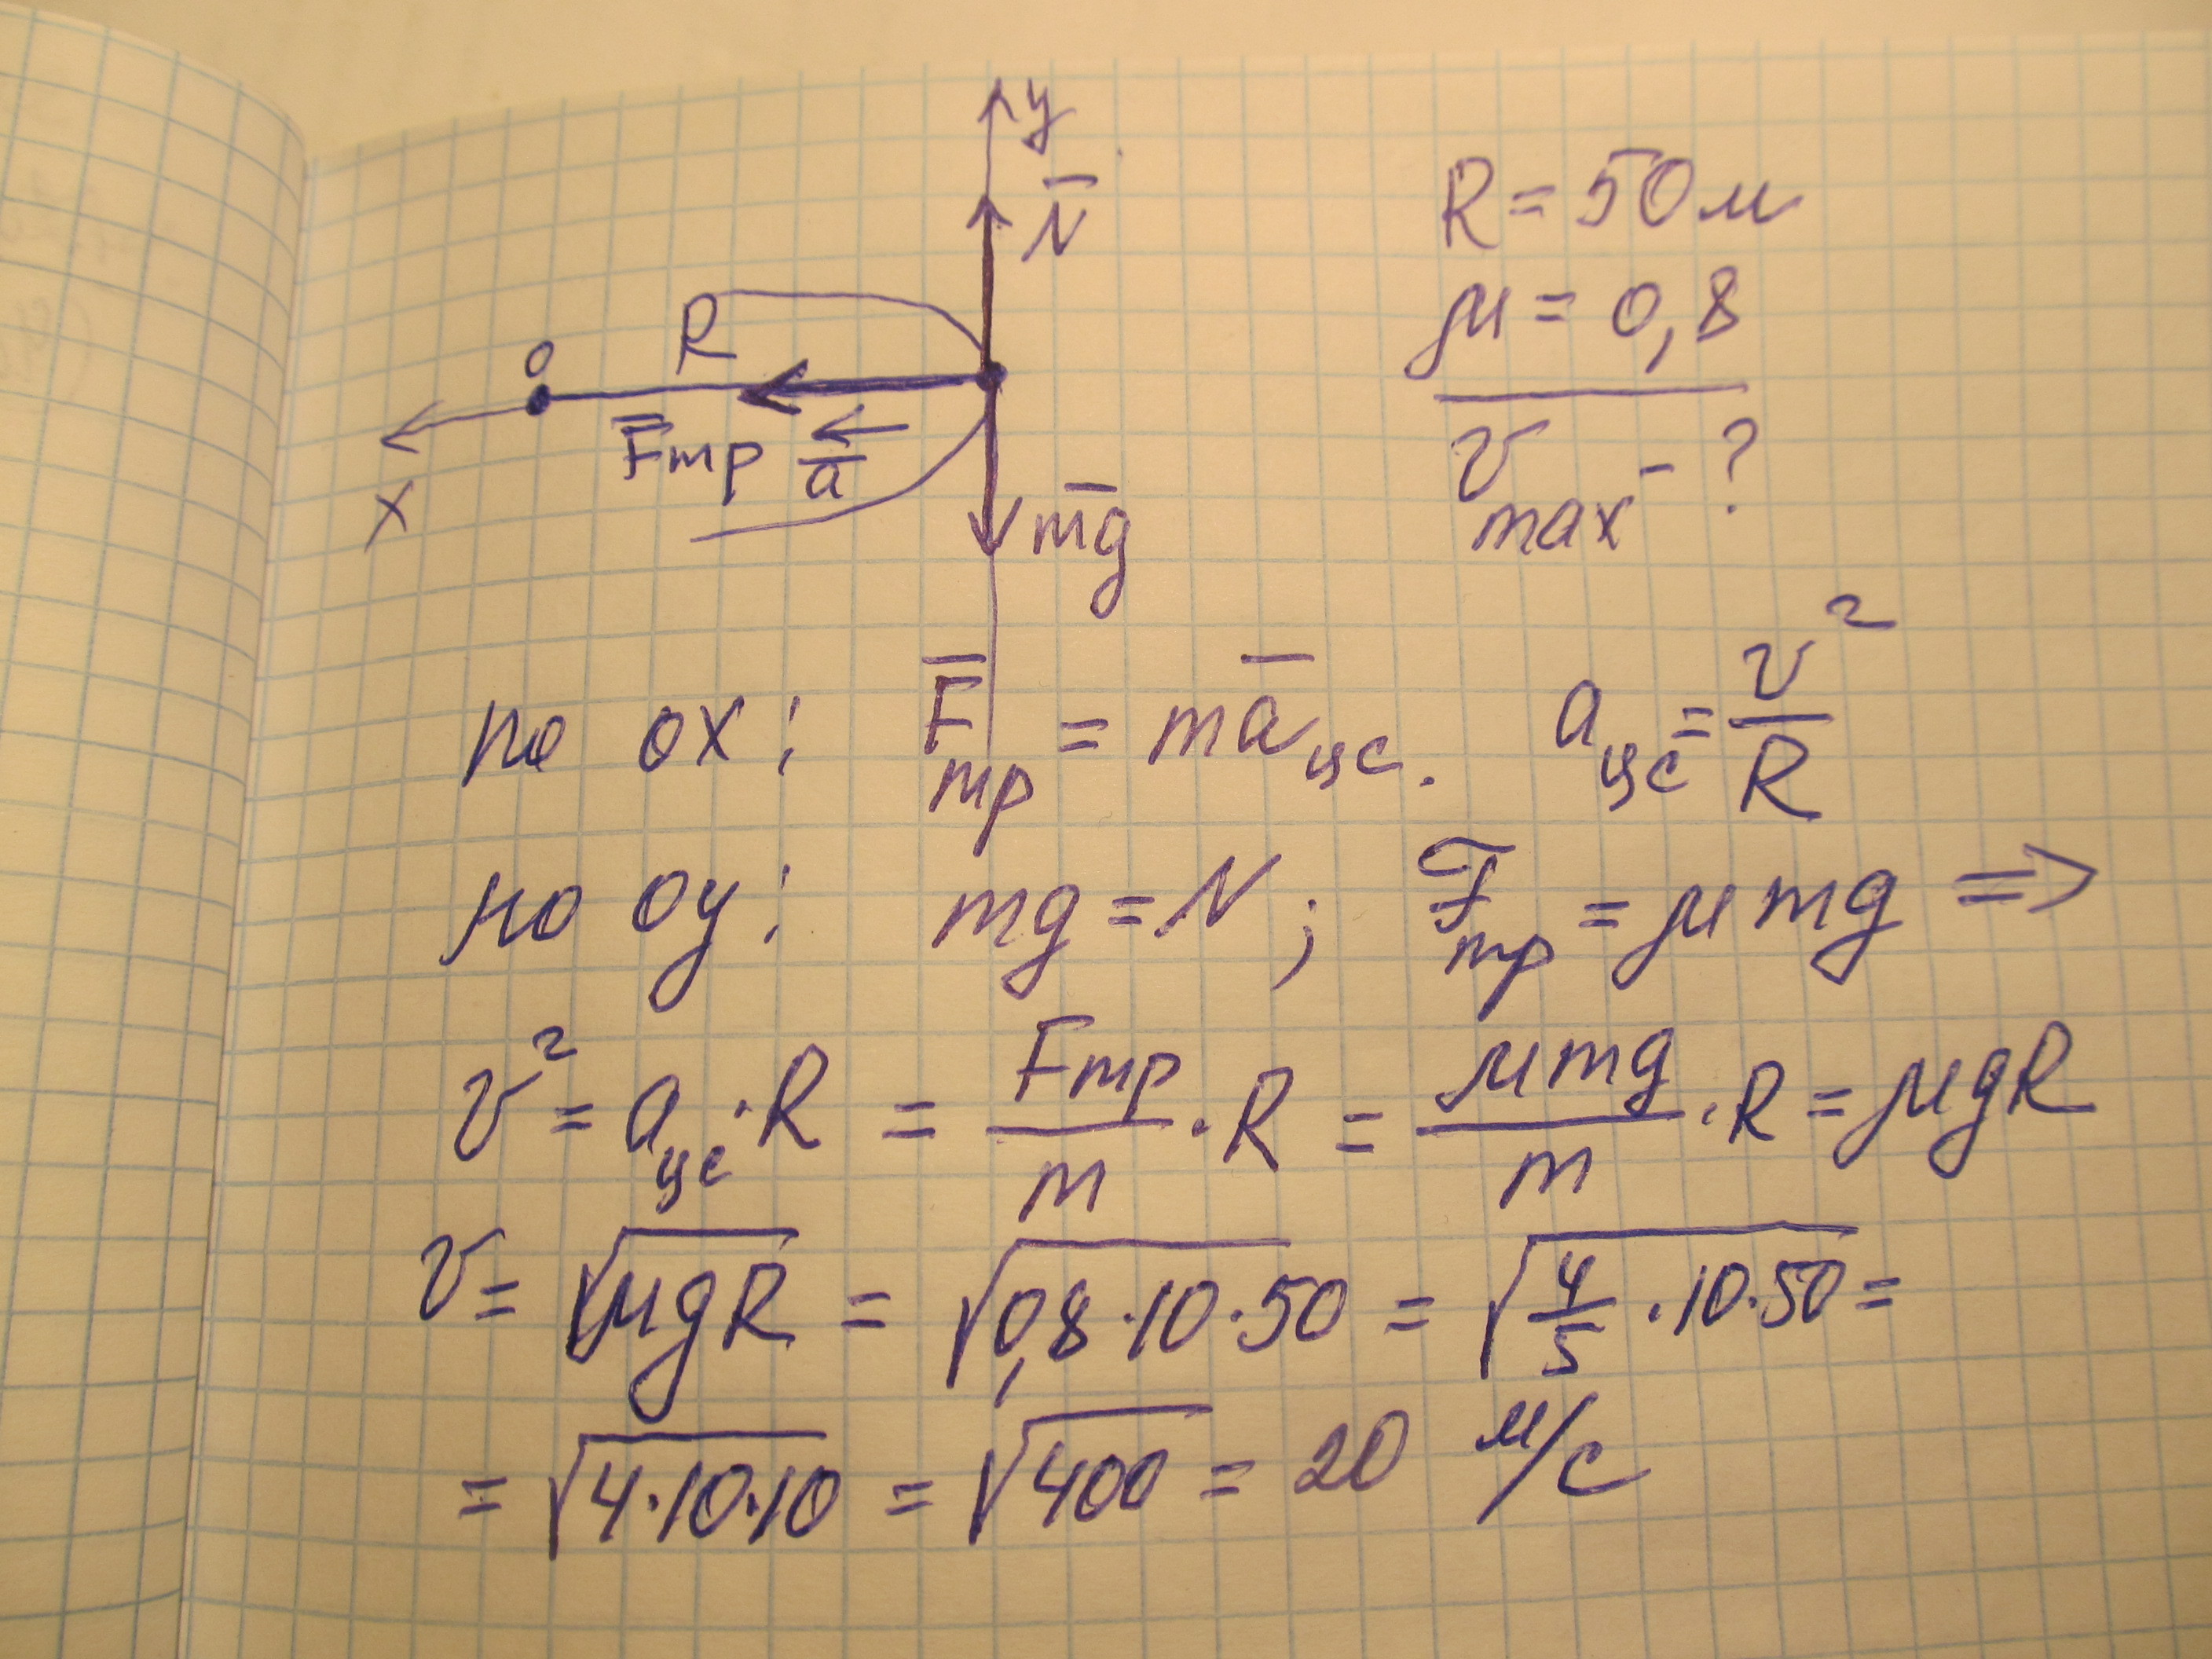 y
N̅
R = 50 м
μ = 0,8
v max - ?
R
0
F̅тр a̅
x
m̅g
по ox: F̅тр = ma̅цс. aцс = v²/R
по oy: mg = N; F̅тр = μmg =>
v² = aцс·R = Fтр/m · R = μmg/m · R = μgR
v = √μgR = √0,8·10·50 = √4/5·10·50 =
= √4·10·10 = √400 = 20 м/с